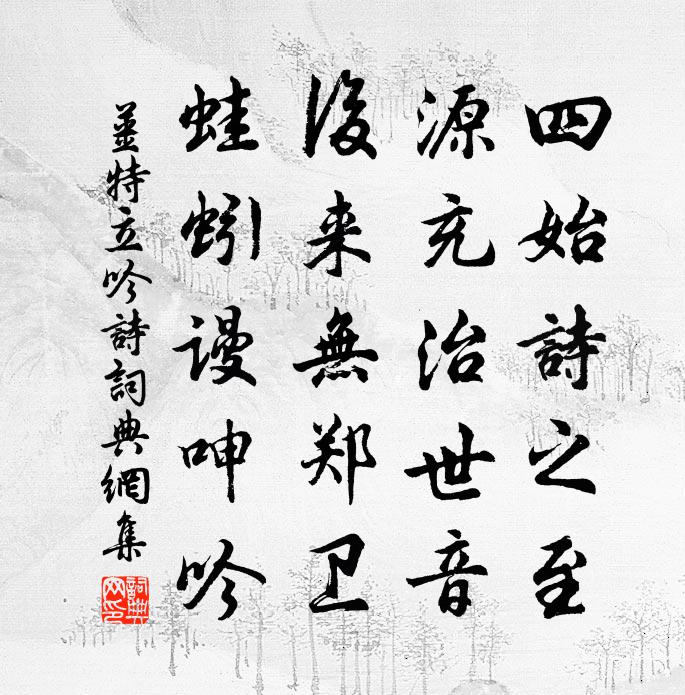 四始詩之至
源充治世音
後来無郑卫
蛙蚓谩呻吟
姜特立吟詩詞典網集
詞典